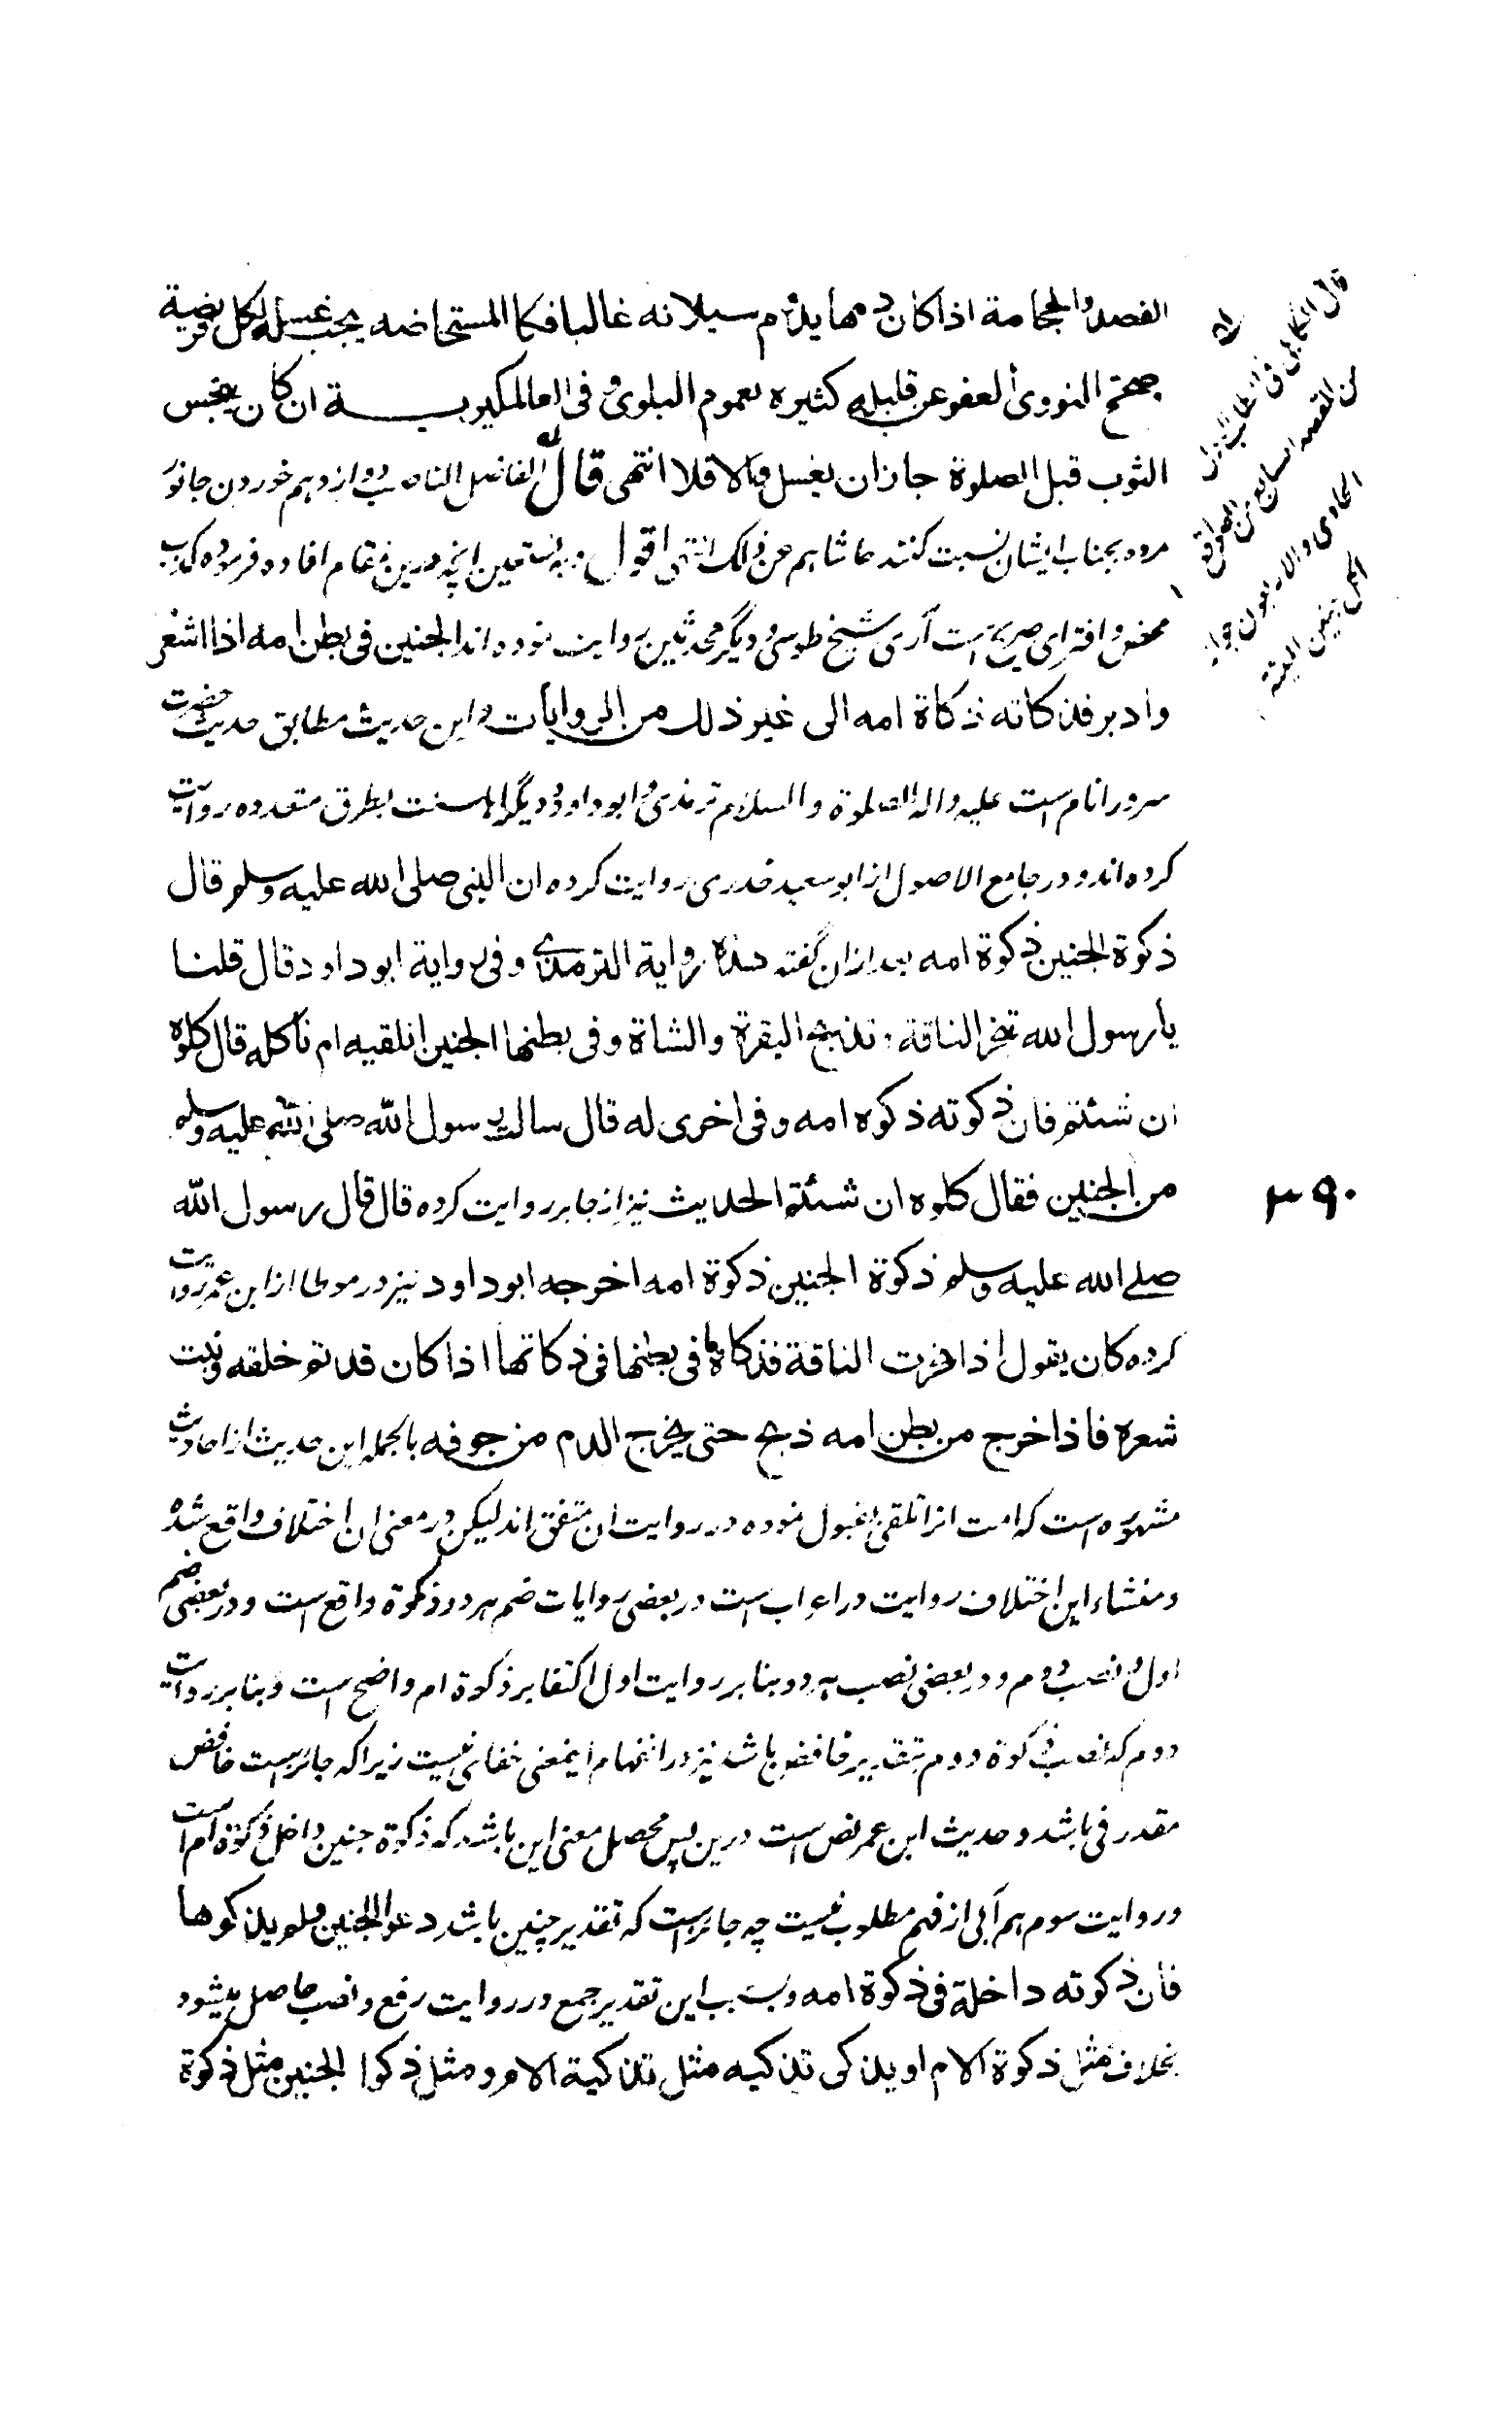 الفصد والحجامة اذا كان دمها يدوم سيلانه غالبا فكالمستحاضه يجب غسله لكل فريضة
صحح النووى العفو عن قليله كثيره لعموم البلوى و فى العالمكيريـــة ان كان ينجس
الثوب قبل الصلوة جاز ان يغسل والا فلا انتهى قال الفاضل الناصب دوازدهم خوردن جانور
مرده بجناب ايشان نسبت كنند حاشاهم عن ذلك انتهى اقول و به نستعين انچه درين مقام افاده فرموده كذب
محض و افتراى صريح است آرى شيخ طوسى و ديگر محدثين روايت نموده اند الجنين فى بطن امه اذا اشعر
وادبر فذكاته ذكاة امه الى غير ذلك من الروايات و اين حديث مطابق حديث حضرت
سرور انام است عليه واله الصلوة والسلام ترمذى و ابو داود و ديگر اهلسنت بطرق متعدده روايت
كرده اند و در جامع الاصول از ابو سعيد خدرى روايت كرده ان النبى صلى الله عليه وسلم قال
ذكوة الجنين ذكوة امه بعد ازان گفته هذه رواية الترمذى و فى رواية ابو داود قال قلنا
يا رسول الله ننحر الناقة و نذبح البقرة والشاة و فى بطنها الجنين انلقيه ام ناكله قال كلوه
ان شئتم فان ذكوته ذكوه امه و فى اخرى له قال سالت رسول الله صلى الله عليه وسلم
من الجنين فقال كلوه ان شئتم الحديث نيز از جابر روايت كرده قال قال رسول الله
صلے الله عليه وسلم ذكوة الجنين ذكوة امه اخرجه ابو داود نيز در موطا از ابن عمر روايت
كرده كان يقول اذا نحرت الناقة فذكاة ما فى بطنها فى ذكاتها اذا كان قد تم خلقه و نبت
شعره فاذا خرج من بطن امه ذبح حتى يخرج الدم من جوفه بالجمله اين حديث از احاديث
مشهوره است كه امت انرا تلقى بقبول نموده در روايت ان متفق اند ليكن در معنى ان اختلاف واقع شده
و منشاء اين اختلاف روايت در اعراب است در بعضى روايات ضم هر دو ذكوة واقع است و در بعضى ضم
اول و نصب دوم و در بعضى نصب هر دو بنا بر روايت اول اكتفا بر ذكوة ام واضح است و بنا بر روايت
دوم كه نصب ذكوة دوم بتقدير خافض باشد نيز در انفهام اينمعنى خفائى نيست زيرا كه جائز است خافض
مقدر فى باشد و حديث ابن عمر نص است درين پس محصل معنى اين باشد كه ذكوة جنين داخل ذكوة ام است
و روايت سوم هم آبى از فهم مطلوب نيست چه جائز است كه تقدير چنين باشد دعوا الجنين ولم يذكوها
فان ذكوته داخلة فى ذكوة امه و بسبب اين تقدير جمع در روايت رفع و نصب حاصل ميشود
بخلاف مثل ذكوة الام او يذكى تذكيه مثل تذكية الام و مثل ذكوا الجنين مثل ذكوة
قال الكابلى فى
الحادى والاربعون جواز
٣٩٠